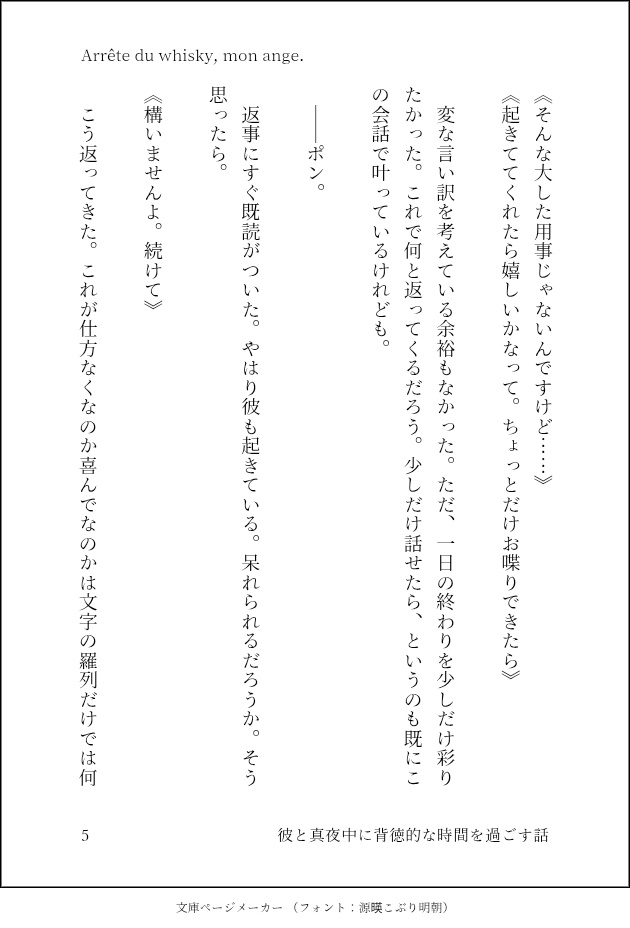 Arrête du whisky, mon ange.
《そんな大した用事じゃないんですけど……》
《起きててくれたら嬉しいかなって。ちょっとだけお喋りできたら》
変な言い訳を考えている余裕もなかった。ただ、一日の終わりを少しだけ彩り
たかった。これで何と返ってくるだろう。少しだけ話せたら、というのも既にこ
の会話で叶っているけれども。
――ポン。
返事にすぐ既読がついた。やはり彼も起きている。呆れられるだろうか。そう
思ったら。
《構いませんよ。続けて》
こう返ってきた。これが仕方なくなのか喜んでなのかは文字の羅列だけでは何
5
彼と真夜中に背徳的な時間を過ごす話
文庫ページメーカー（フォント：源暎こぶり明朝）